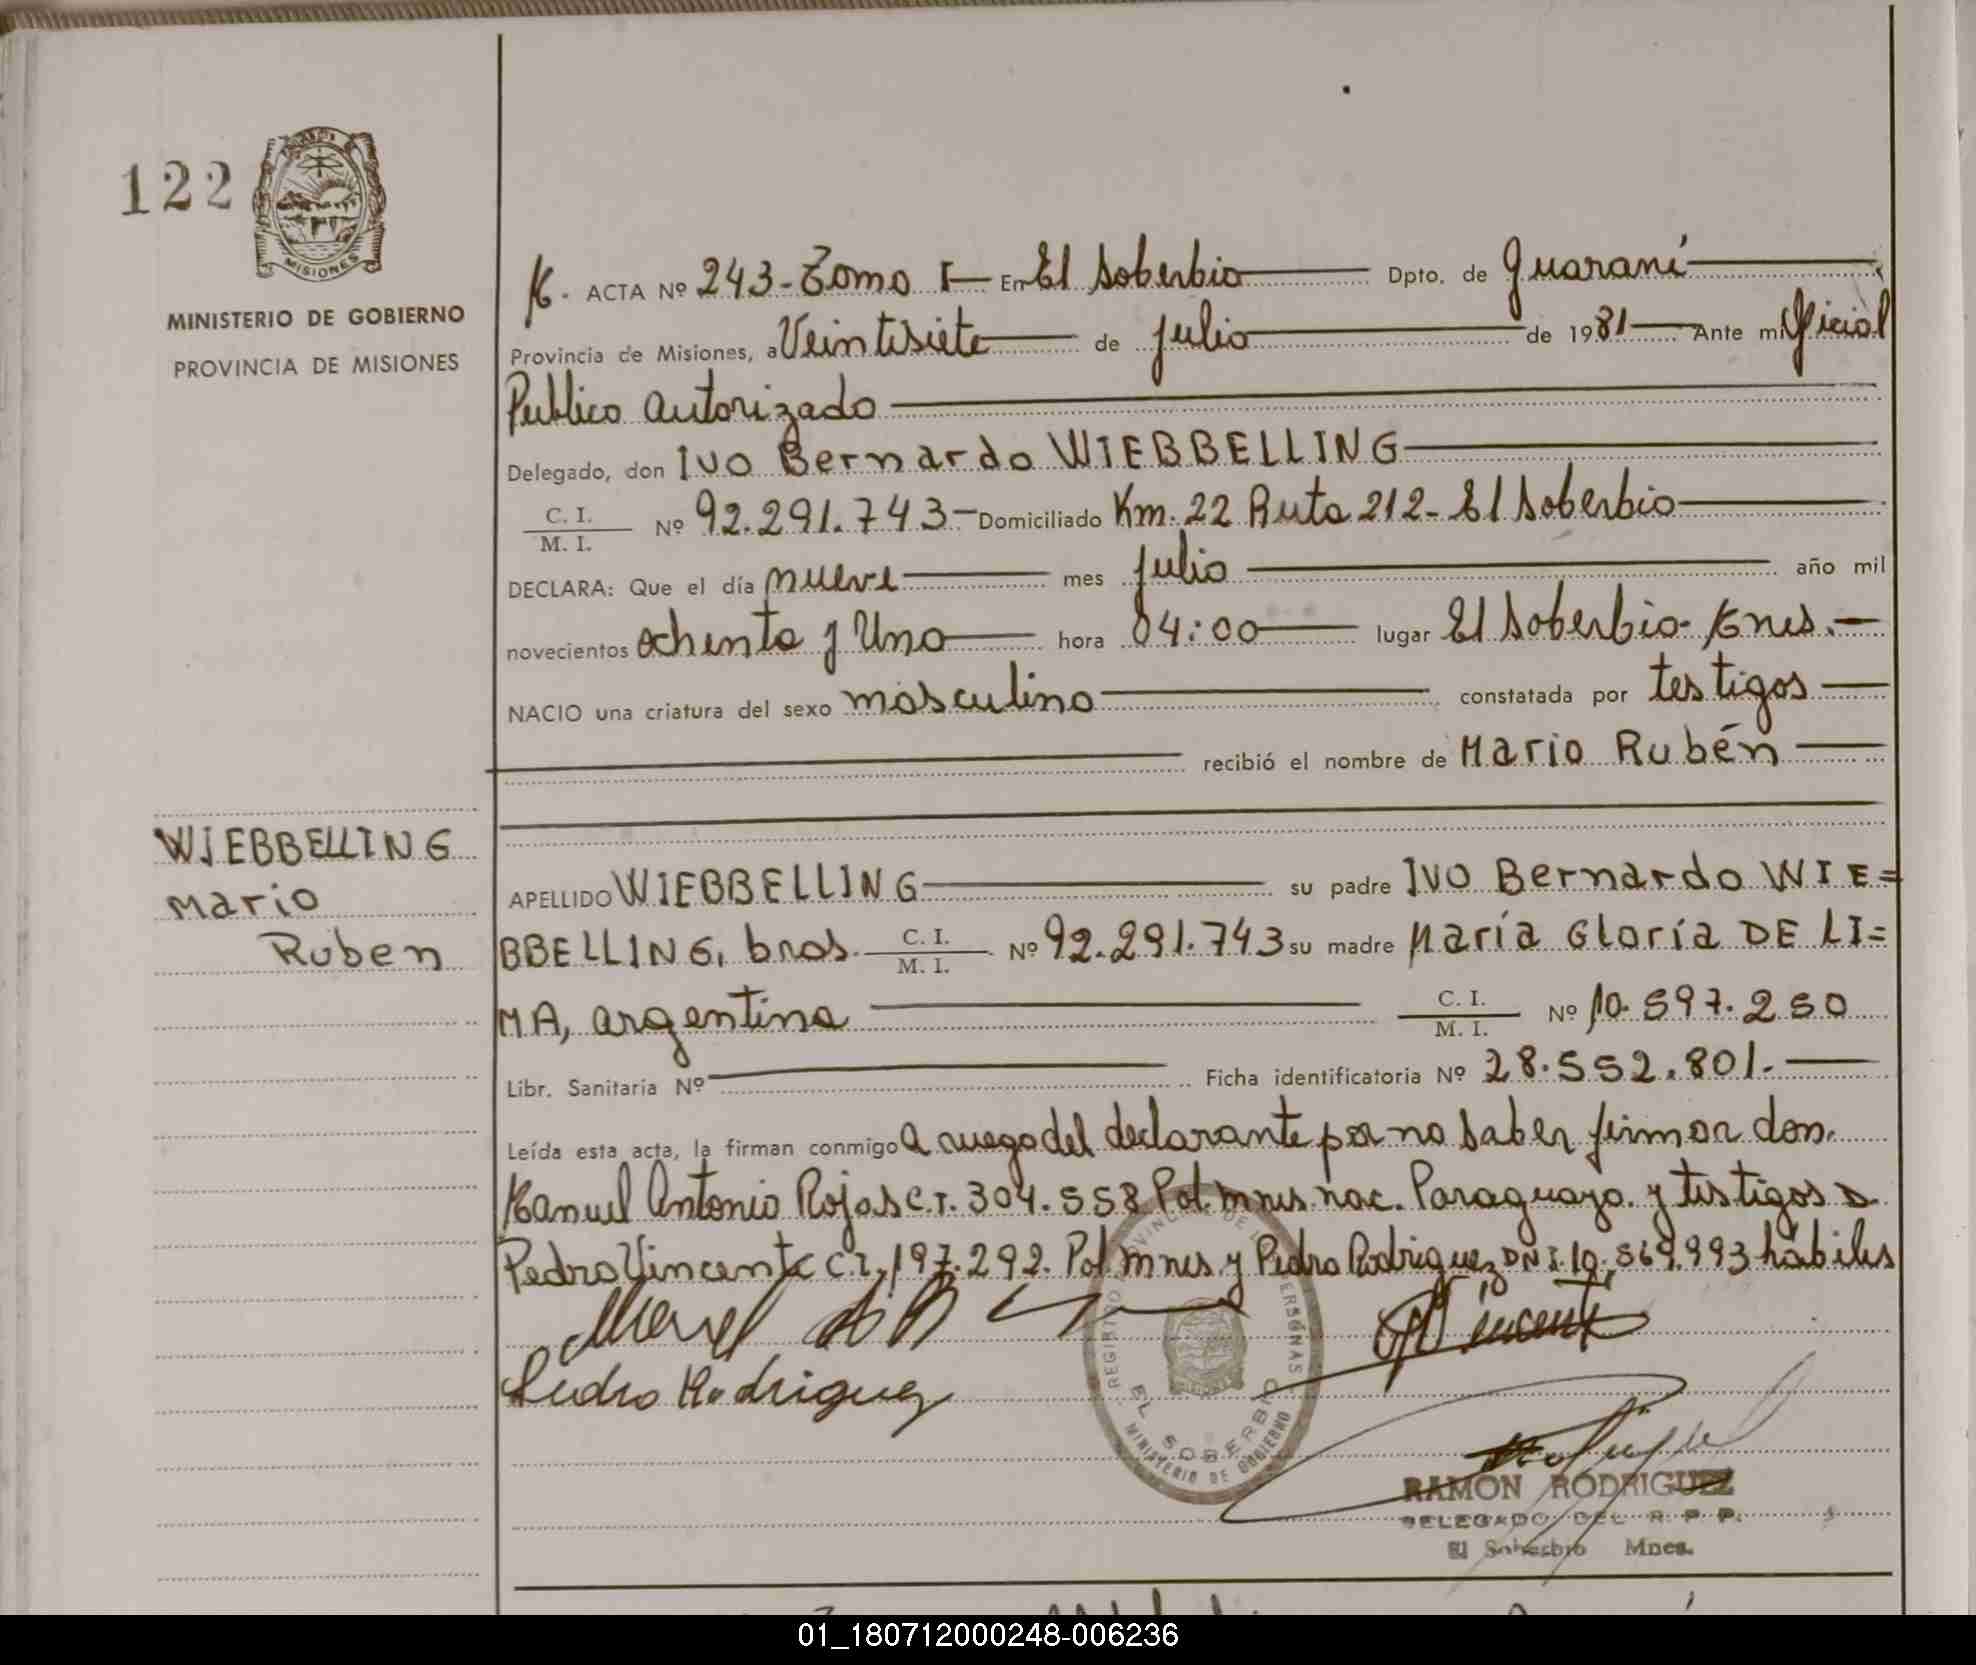 122
MISIONES
MINISTERIO DE GOBIERNO
PROVINCIA DE MISIONES
WIEBBELLING
Mario
Ruben
ACTA Nº 243-Tomo I En El Soberbio Dpto. de Guaraní
Provincia de Misiones, a Veintisiete de julio de 1981 Ante mi Oficial
Publico autorizado
Delegado, don Ivo Bernardo WIEBBELLING
C. I.
M. I. Nº 92.291.743- Domiciliado Km. 22 Ruta 212- El Soberbio
DECLARA: Que el día nueve mes julio año mil
novecientos ochenta y Uno hora 04:00 lugar El Soberbio- Mnes.-
NACIO una criatura del sexo masculino constatada por testigos
recibió el nombre de Mario Rubén
APELLIDO WIEBBELLING su padre Ivo Bernardo WIE=
BBELLING, bras. C. I.
M. I. Nº 92.291.743 su madre María Gloria DE LI=
MA, argentina C. I.
M. I. Nº 10.597.250
Libr. Sanitaria Nº Ficha identificatoria Nº 28.552.801.-
Leída esta acta, la firman conmigo a ruego del declarante por no saber firmar don.
Manuel Antonio Rojas C.I. 304.558 Pol. Mnes. nac. Paraguaya. y testigos D.
Pedro Vincente C.I. 197.292. Pol Mnes y Pedro Rodriguez DNI. 10.569.993 hábiles
Pedro Rodriguez
EL SOBERBIO
MINISTERIO DE GOBIERNO
RAMON RODRIGUEZ
DELEGADO DEL R. P. P.
El Soberbio Mnes.
01_180712000248-006236